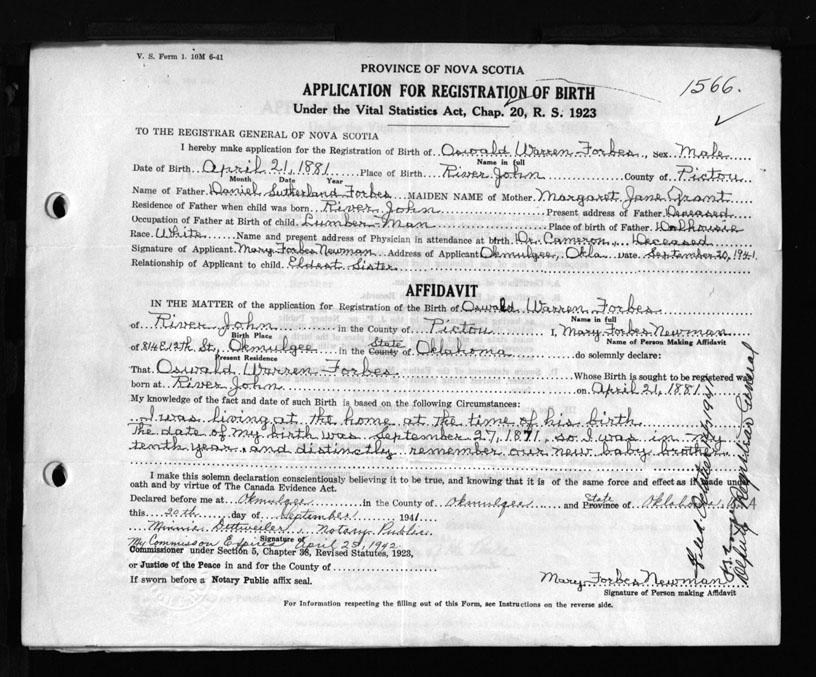 V. S. Form 1. 10M 6-41
PROVINCE OF NOVA SCOTIA
APPLICATION FOR REGISTRATION OF BIRTH
1566.
Under the Vital Statistics Act, Chap. 20, R. S. 1923
TO THE REGISTRAR GENERAL OF NOVA SCOTIA
I hereby make application for the Registration of Birth of Oswald Warren Forbes, Sex Male
Name in full
Date of Birth April 21, 1881 Place of Birth River John County of Pictou
Month Date Year
Name of Father Daniel Sutherland Forbes MAIDEN NAME of Mother Margaret Jane Grant
Residence of Father when child was born River John Present address of Father Deceased
Occupation of Father at Birth of child Lumber Man Place of birth of Father Dalhousie
Race White Name and present address of Physician in attendance at birth Dr. Cameron, Deceased
Signature of Applicant Mary Forbes Newman Address of Applicant Okmulgee, Okla Date September 20, 1941.
Relationship of Applicant to child Eldest Sister
AFFIDAVIT
IN THE MATTER of the application for Registration of the Birth of Oswald Warren Forbes
Name in full
of River John in the County of Pictou I, Mary Forbes Newman
Birth Place Name of Person Making Affidavit
of 814 E 12th St, Okmulgee in the County State of Oklahoma do solemnly declare:
Present Residence
That Oswald Warren Forbes Whose Birth is sought to be registered was
born at River John on April 21, 1881
My knowledge of the fact and date of such Birth is based on the following Circumstances:
I was living at the home at the time of his birth
The date of my birth was September 27, 1871, so I was in my
tenth year and distinctly remember our new baby brother
I make this solemn declaration conscientiously believing it to be true, and knowing that it is of the same force and effect as if made under
oath and by virtue of The Canada Evidence Act.
Declared before me at Okmulgee in the County of Okmulgee and Province State of Oklahoma
this 20th day of September 1941
Minnie Dettweiler, Notary Public
Signature of
My Commission Expires April 25, 1942
Commissioner under Section 5, Chapter 38, Revised Statutes, 1923,
or Justice of the Peace in and for the County of
If sworn before a Notary Public affix seal.
Mary Forbes Newman
Signature of Person making Affidavit
For Information respecting the filling out of this Form, see Instructions on the reverse side.
Deputy Registrar General